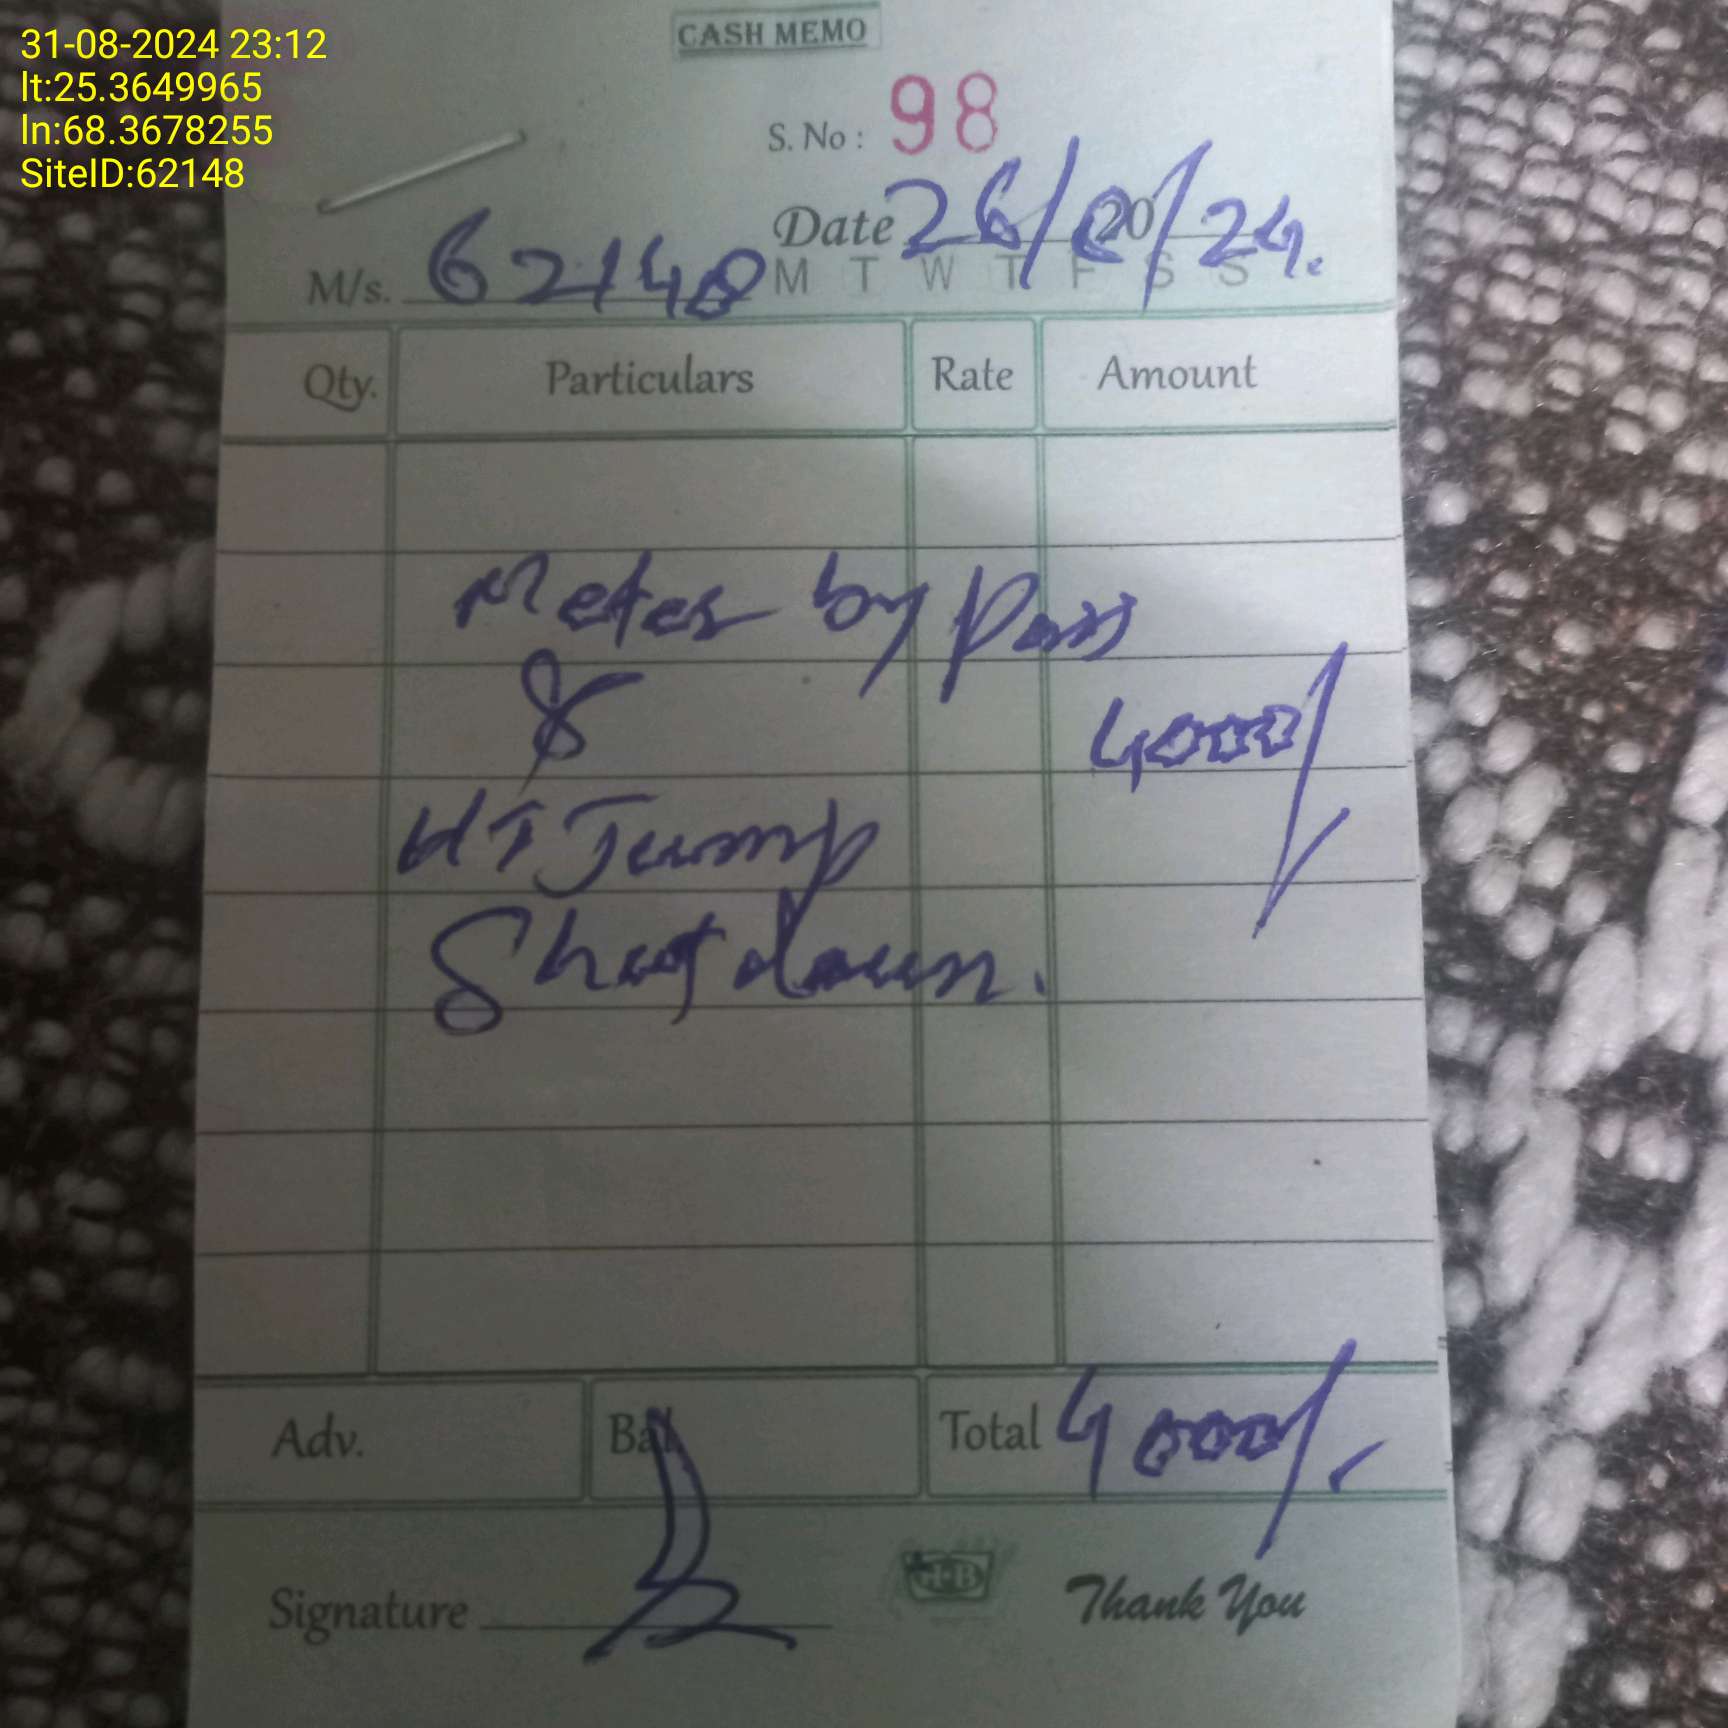 31-08-2024 23:12
lt:25.3649965
ln:68.3678255
SiteID:62148
CASH MEMO
S. No : 98
Date 26/8/24.
M/s. 62148
M T W T F S S
Qty. Particulars Rate Amount
Meter by Pass
&
4000/
HT Jump
Shutdown.
Adv. Bal. Total 4000/-
Signature
Thank You